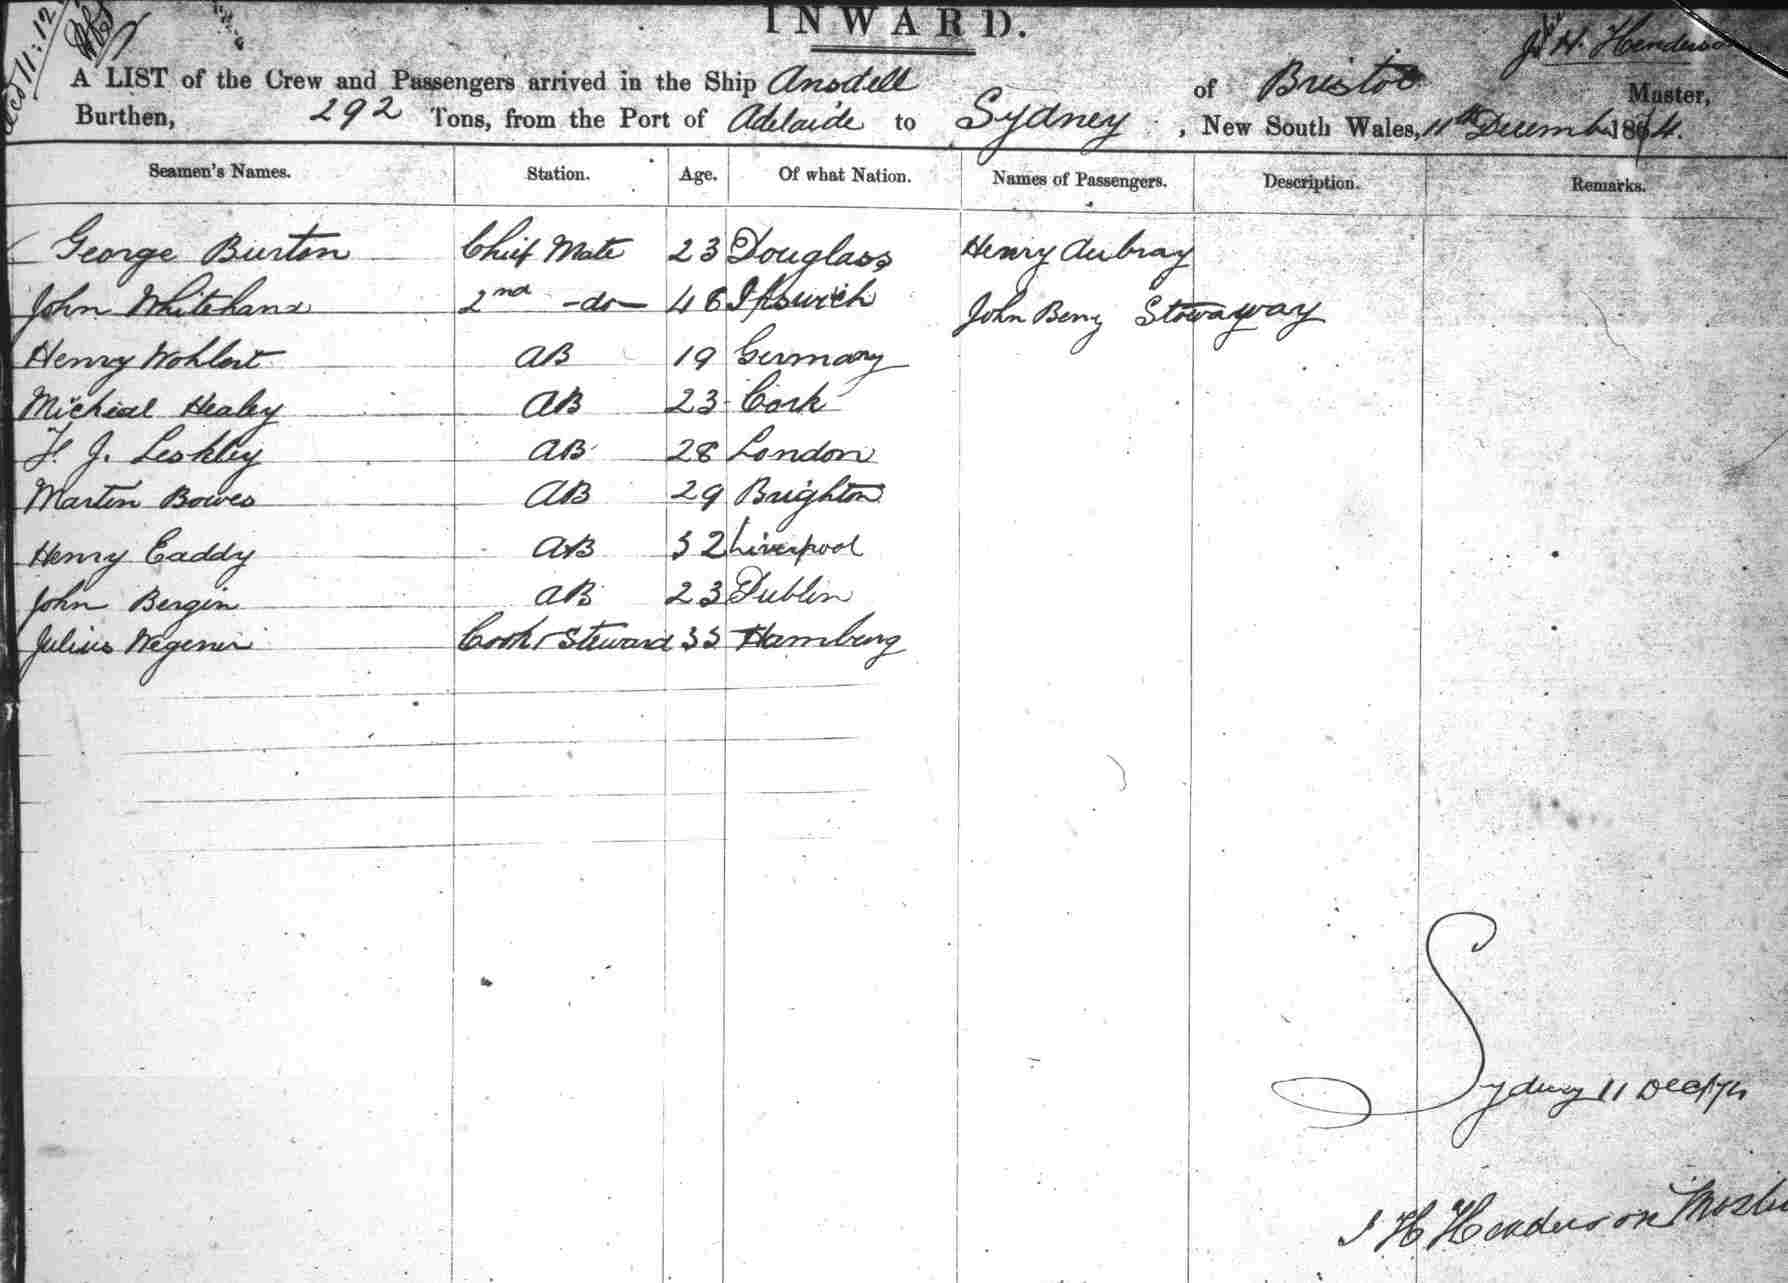 INWARD.
11:12
J. H. Henderson
A LIST of the Crew and Passengers arrived in the Ship Ansdell of Bristol Master,
Burthen, 292 Tons, from the Port of Adelaide to Sydney, New South Wales, 11th December 1874.
Seamen's Names. Station. Age. Of what Nation. Names of Passengers. Description. Remarks.
George Burton Chief Mate 23 Douglass Henry Aubray
John Whitehand 2nd -do- 46 Ipswich John Berry Stowaway
Henry Wohlert AB 19 Germany
Micheal Healey AB 23 Cork
H. J. Leskley AB 28 London
Martin Bowes AB 29 Brighton
Henry Caddy AB 32 Liverpool
John Bergin AB 23 Dublin
Julius Wegener Cook & Steward 33 Hamburg
Sydney 11 Dec/74
J H Henderson Master